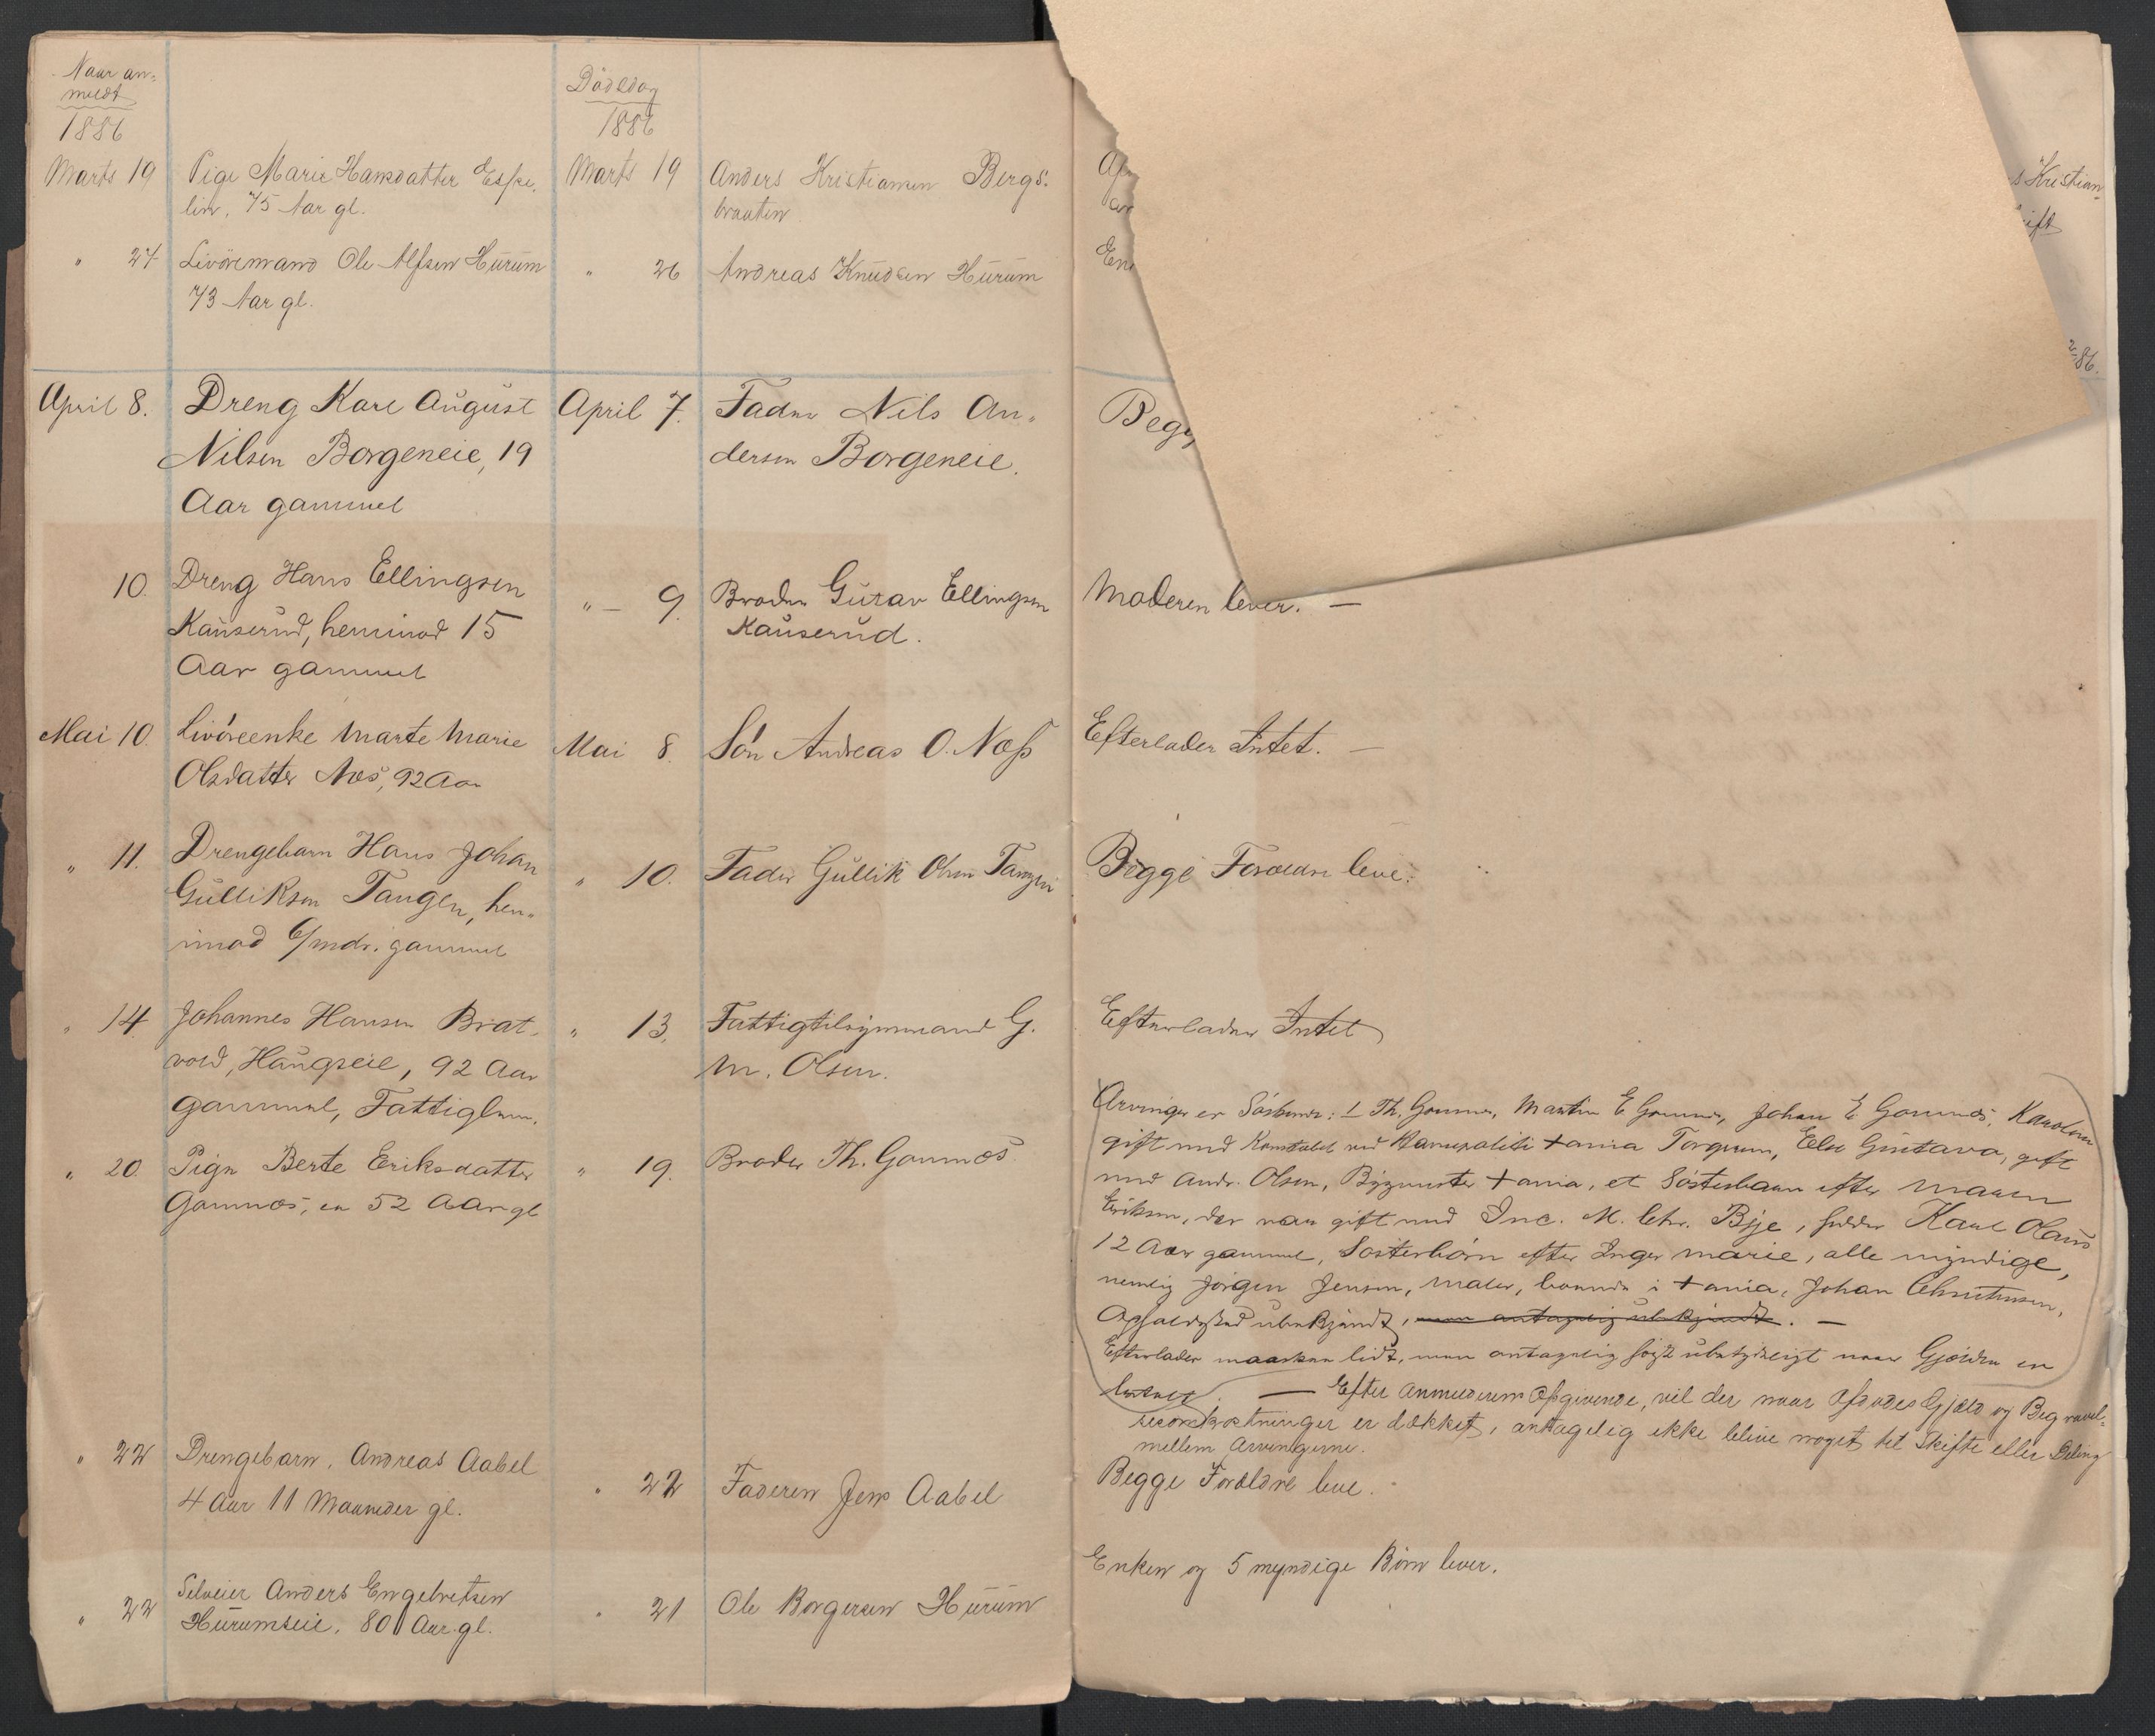 Naar an-
meldt
1886
Dødsdag
1886
Marts 19
Pige Marie Hansdatter Espe-
lin, 75 Aar gl.
Marts 19
Anders Kristiansen Bergs-
braaten
" 27
Livöremand Ole Alfsen Hurum
73 Aar gl.
" 26
Andreas Knudsen Hurum
s Kristian-
ift
86.
April 8.
Dreng Karl August
Nilsen Borgeneie, 19
Aar gammel
April 7.
Fader Nils An-
dersen Borgeneie.
Begg
10.
Dreng Hans Ellingsen
Kauserud, henimod 15
Aar gammel
" — 9.
Broder Gustav Ellingsen
Kauserud.
Moderen lever. —
Mai 10.
Livöreenke Marte Marie
Olsdatter Næs, 92 Aar
Mai 8.
Sön Andreas O. Næss
Efterlader Intet. —
" 11.
Drengebarn Hans Johan
Gulliksen Tangen, hen-
imod 6/mdr. gammel
" 10.
Fader Gullik Olsen Tangen
Begge Forældre leve.
" 14.
Johannes Hansen Brat-
vold, Haugseie, 92 Aar
gammel, Fattiglem.
" 13.
Fattigtilsynsmand G.
M. Olsen.
Efterlader Intet
" 20.
Pige Berte Eriksdatter
Gamnæs, ca 52 Aar gl
" 19.
Broder Th. Gomnæs.
Arvinger er Söskende: 1 Th. Gomnæs, Martin E Gomnæs, Johan E Gomnæs, Karoline
gift med Konstabel ved Havnepolitiet i Xania Torgersen, Else Gustava, gift
med Andr. Olsen, Bygmester Xania, et Søsterbarn efter Maren
Eriksen, der var gift med Inc. M. Chr. Bye, hedder Karl Olaus
12 Aar gammel, Søsterbørn efter Inger Marie, alle myndige,
nemlig Jørgen Jensen, Maler, boende i Xania, Johan Christensen,
Opholdssted ubekjendt, men antagelig ubekjendt. —
Efterlader maaske lidt, men antagelig høist ubetydeligt naar Gjælden er
betalt. — Efter Anmelderens Opgivende, vil der naar Afdødes Gjæld og Begravel-
sesomkostninger er dækket, antagelig ikke blive noget til Skifte eller Deling
mellem Arvingerne.
" 22
Drengebarn, Andreas Aabel
4 Aar 11 Maaneder gl.
" 22
Faderen Jens Aabel
Begge Forældre leve.
" 22
Selveier Anders Engebretsen
Hurumseie, 80 Aar gl.
" 21
Ole Borgersen Hurum
Enken og 5 myndige Børn lever.